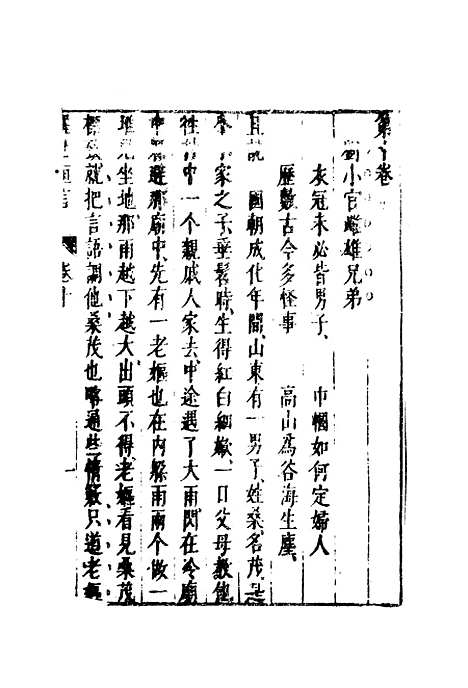 第十卷
劉小官雌雄兄弟
衣冠未必皆男子、巾幗如何定婦人
歷數古今多怪事高山為谷海生塵、
且說國朝成化年間、山東有一男子、姓桑、名茂、是
家之子、垂髫時、生得紅白細嫩、一日父母教他
往中一个親戚人家去、中途遇了大雨、閃在冷廟
中躲避那廟中、先有一老嫗也在內躲雨、兩个做一
堆兒坐地、那雨越下越大、出頭不得、老嫗看見桑茂
就把言語調他、桑茂也略通些情竅、只道老嫗
卷十
一